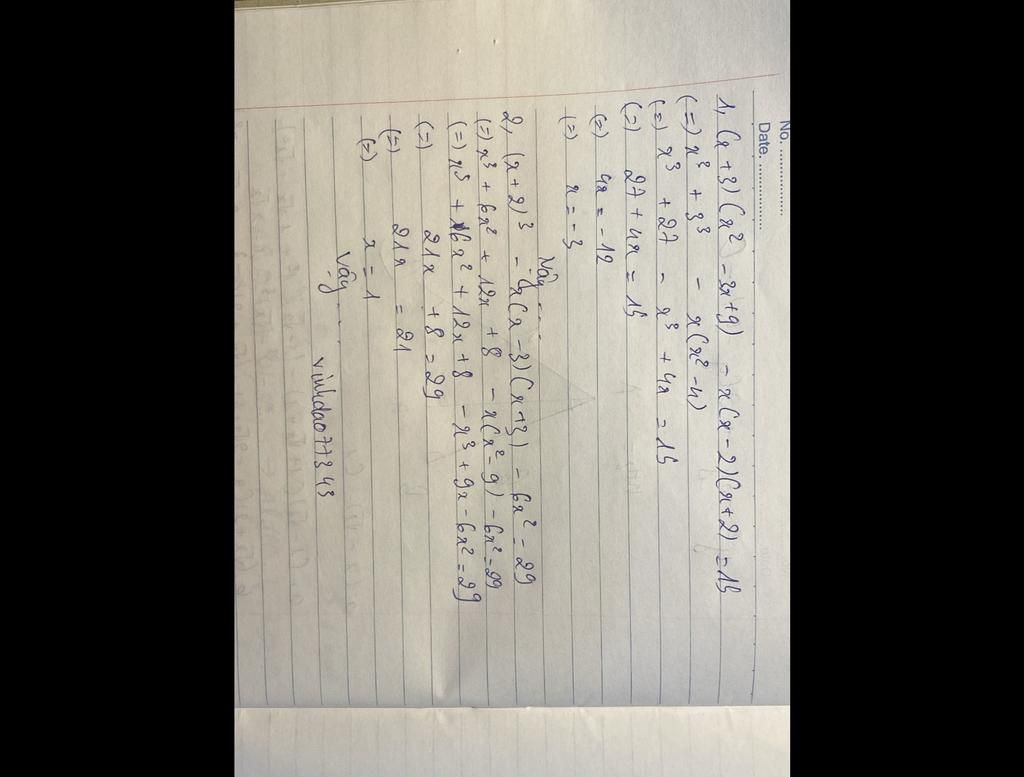 No. ................
Date. ................
1, (x + 3) (x² - 3x + 9) - x(x - 2)(x + 2) = 15
(=) x³ + 3³ - x(x² - 4)
(=) x³ + 27 - x³ + 4x = 15
(=) 27 + 4x = 15
(=) 4x = -12
(=) x = -3
Vậy ....
2, (x + 2)³ - x(x - 3)(x + 3) - 6x² = 29
(=) x³ + 6x² + 12x + 8 - x(x² - 9) - 6x² = 29
(=) x³ + 6x² + 12x + 8 - x³ + 9x - 6x² = 29
(=) 21x + 8 = 29
(=) 21x = 21
(=) x = 1
Vậy ...
vinhdao77343